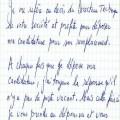 Je me réfère au décès du Directeur Technique
de votre société et profite pour déposer
ma candidature pour son remplacement.
A chaque fois que je dépose ma
candidature, j'ai toujours la réponse qu'il
n'y a pas de poste vacant. Mais cette fois
je vous prends au dépourvu et vous